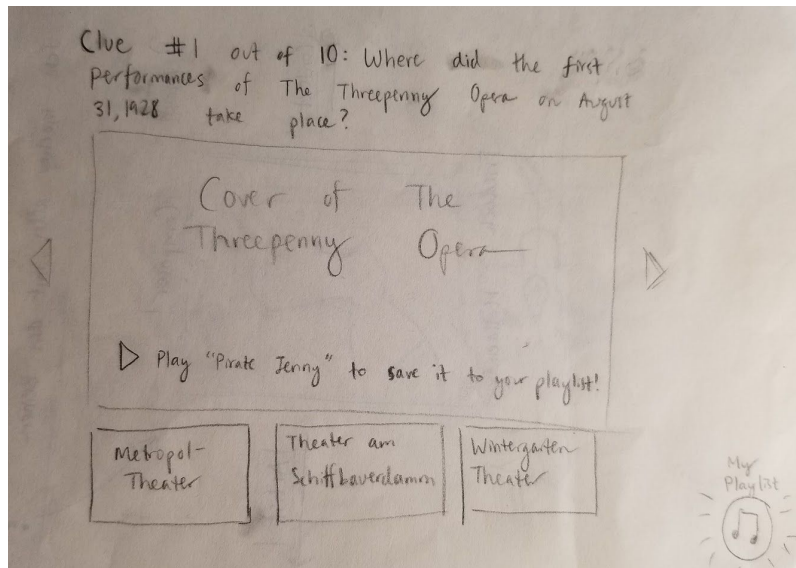 Clue #1 out of 10: Where did the first
performances of The Threepenny Opera on August
31, 1928 take place?
Cover of The
Threepenny Opera
Play "Pirate Jenny" to save it to your playlist!
Metropol-
Theater
Theater am
Schiffbauerdamm
Wintergarten
Theater
My
Playlist